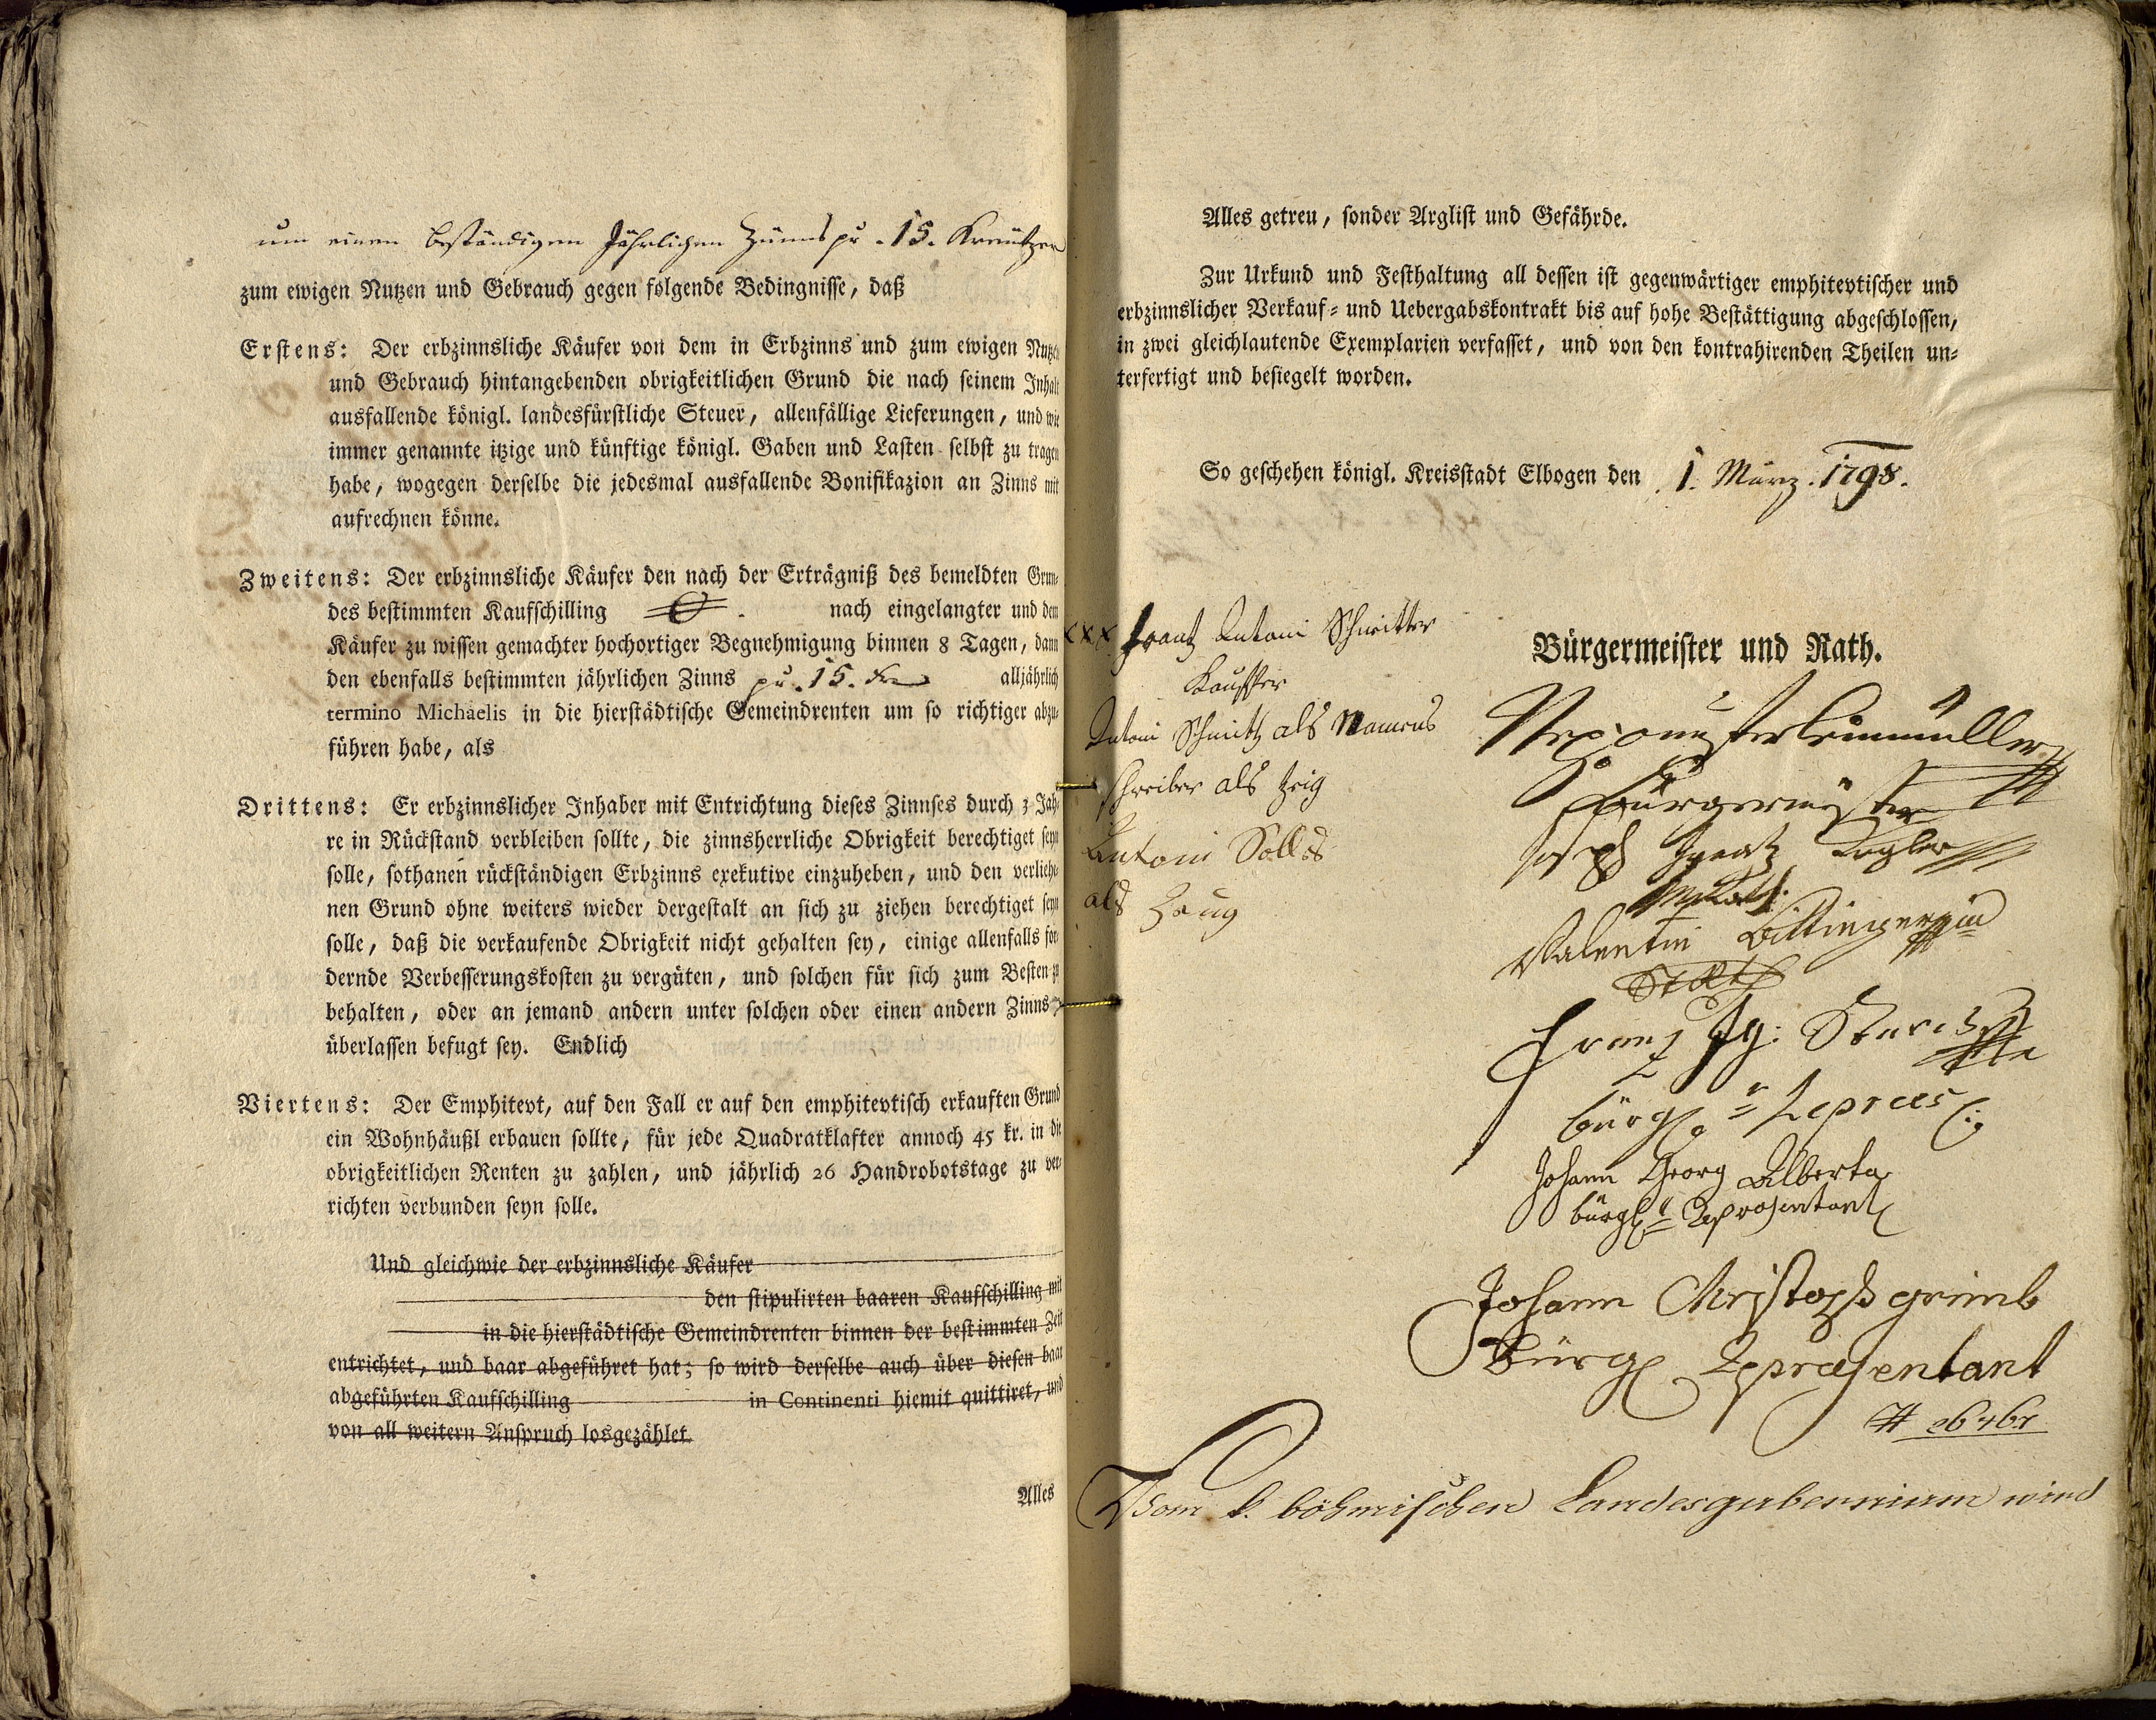 um einen beständigen Jährlichen Zünns pr. 15. Kreutzer
zum ewigen Nutzen und Gebrauch gegen folgende Bedingnisse, daß
Erstens: Der erbzinnsliche Käufer von dem in Erbzinns und zum ewigen Nutzen
und Gebrauch hintangebenden obrigkeitlichen Grund die nach seinem Inhalt
ausfallende königl. landesfürstliche Steuer, allenfällige Lieferungen, und wie
immer genannte itzige und künftige königl. Gaben und Lasten selbst zu tragen
habe, wogegen derselbe die jedesmal ausfallende Bonifikazion an Zinns mit
aufrechnen könne.
Zweitens: Der erbzinnsliche Käufer den nach der Erträgniß des bemeldten Grun-
des bestimmten Kaufschilling nach eingelangter und dem
Käufer zu wissen gemachter hochortiger Begnehmigung binnen 8 Tagen, dann
den ebenfalls bestimmten jährlichen Zinns pr. 15. kr alljährlich
termino Michaelis in die hierstädtische Gemeindrenten um so richtiger abzu-
führen habe, als
Drittens: Er erbzinnslicher Inhaber mit Entrichtung dieses Zinnses durch 3 Jah-
re in Rückstand verbleiben sollte, die zinnsherrliche Obrigkeit berechtiget seyn
solle, sothanen rückständigen Erbzinns exekutive einzuheben, und den verliehe-
nen Grund ohne weiters wieder dergestalt an sich zu ziehen berechtiget seyn
solle, daß die verkaufende Obrigkeit nicht gehalten sey, einige allenfalls for-
dernde Verbesserungskosten zu vergüten, und solchen für sich zum Besten zu
behalten, oder an jemand andern unter solchen oder einen andern Zinns zu
überlassen befugt sey. Endlich
Viertens: Der Emphitevt, auf den Fall er auf den emphitevtisch erkauften Grund
ein Wohnhäußl erbauen sollte, für jede Quadratklafter annoch 45 kr. in die
obrigkeitlichen Renten zu zahlen, und jährlich 26 Handrobotstage zu ver-
richten verbunden seyn solle.
Und gleichwie der erbzinnsliche Käufer
den stipulirten baaren Kaufschilling mit
in die hierstädtische Gemeindrenten binnen der bestimmten Zeit
entrichtet, und baar abgeführet hat; so wird derselbe auch über diesen baar
abgeführten Kaufschilling in Continenti hiemit quittiret, und
von all weitern Anspruch losgezählet.
Alles
Alles getreu, sonder Arglist und Gefährde.
Zur Urkund und Festhaltung all dessen ist gegenwärtiger emphitevtischer und
erbzinnslicher Verkauf- und Uebergabskontrakt bis auf hohe Bestättigung abgeschlossen,
in zwei gleichlautende Exemplarien verfasset, und von den kontrahirenden Theilen un-
terfertigt und besiegelt worden.
So geschehen königl. Kreisstadt Elbogen den 1. März. 1798.
xxx Frantz Antoni
Kauffer
Antoni Schmitz als Namens
schreiber als Zeig
Antoni
als Zeug
Bürgermeister und Rath.
Bürgermeister
Joseph Ignatz
Valentin
Franz Ig:
bürgl.
Johann Georg Alberta
bürgl. Repräsentant
Johann Christoph grimb
Bürgl Repræsentant
Vom k. böhmischen Landesgubernium wird